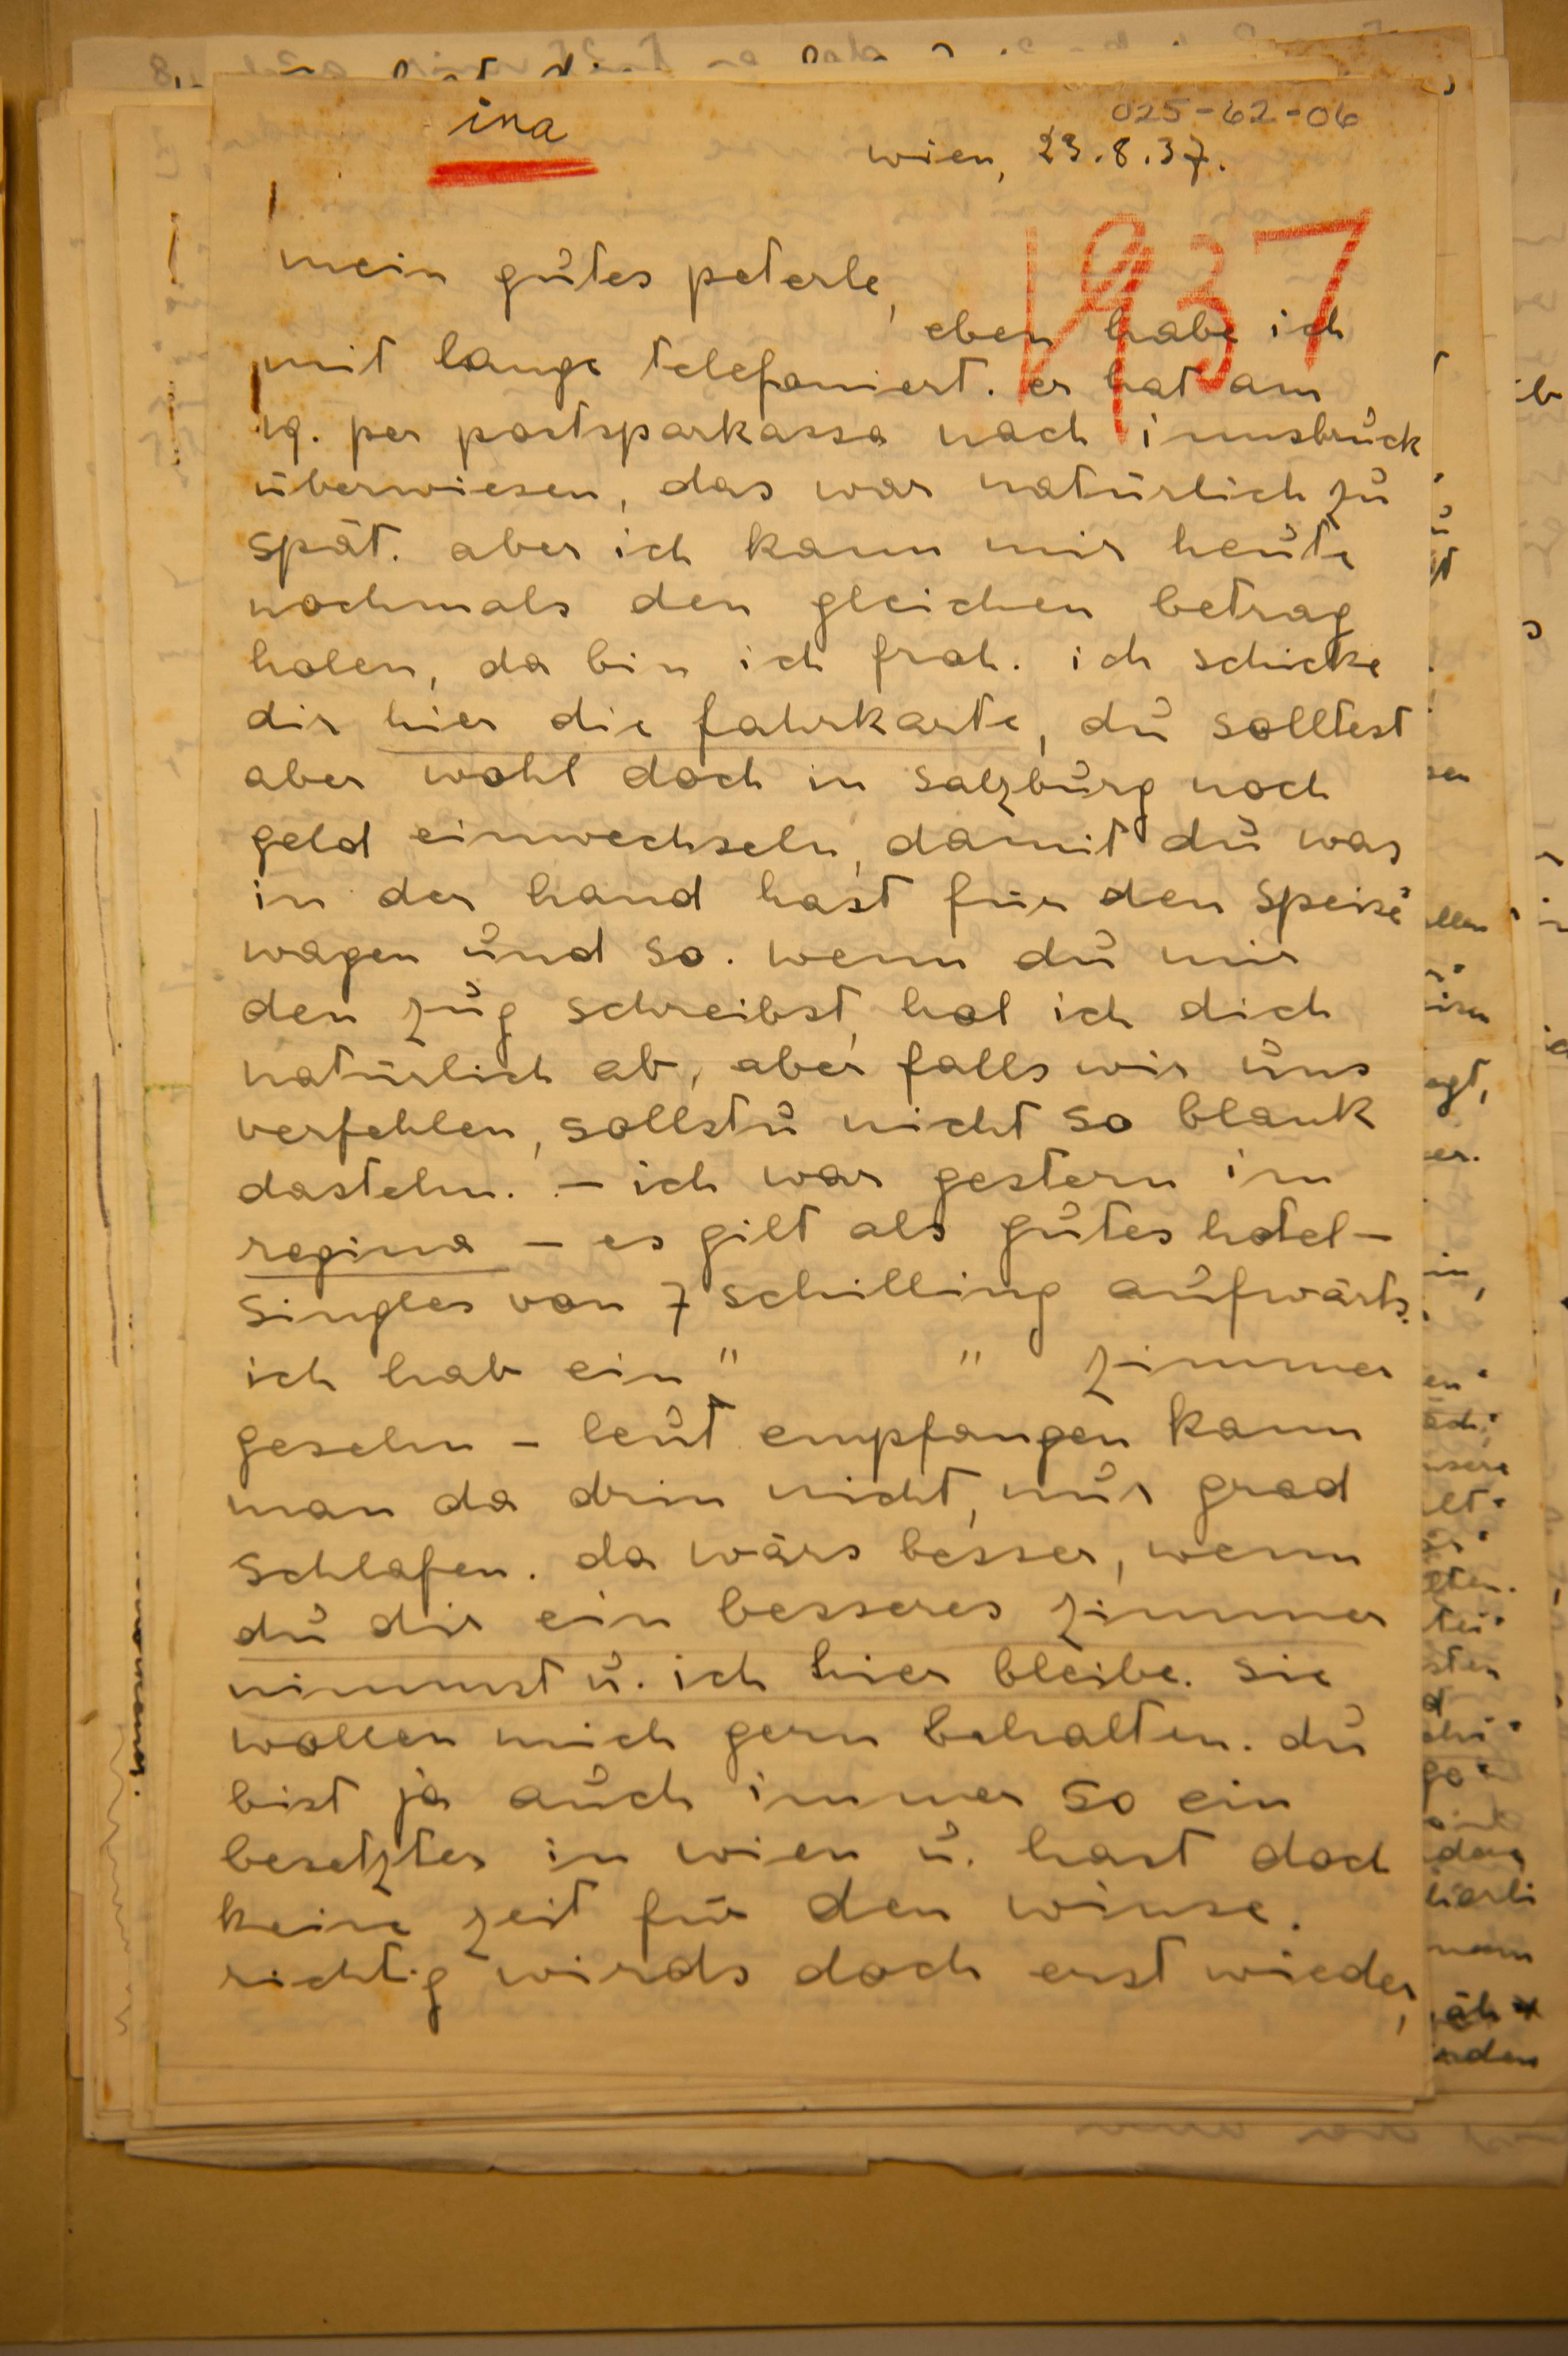 ina
025-62-06
wien, 23.8.37.
1937
mein gutes peterle,
eben habe ich
mit lange telefoniert. er hat am
19. per postsparkassa nach innsbruck
überwiesen, das war natürlich zu
spät. aber ich kann mir heute
nochmals den gleichen betrag
holen, da bin ich froh. ich schicke
dir hier die fahrkarte, du solltest
aber wohl doch in salzburg noch
geld einwechseln, damit du was
in der hand hast für den speise
wagen und so. wenn du mir
den zug schreibst, hol ich dich
natürlich ab, aber falls wir uns
verfehlen, sollstu nicht so blank
dastehn. – ich war gestern im
regina – es gilt als gutes hotel –
singles von 7 schilling aufwärts.
ich hab ein " " zimmer
gesehn – leut empfangen kann
man da drin nicht, nur grad
schlafen. da wärs besser, wenn
du dir ein besseres zimmer
nimmst u. ich hier bleibe. sie
wollen mich gern behalten. du
bist ja auch immer so ein
besetzter in wien u. hast doch
keine zeit für den winse.
richtig wirds doch erst wieder,